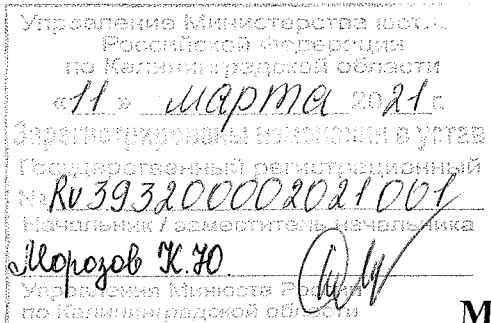 Управление Министерства юст
Российской Федерации
по Калининградской области
«11» марта 2021 г.
Зарегистрированы изменения в устав
Государственный регистрационный
№ RU393200002021001
Начальник / заместитель начальника
Морозов К.Ю.
Управления Минюста России
по Калининградской области
М